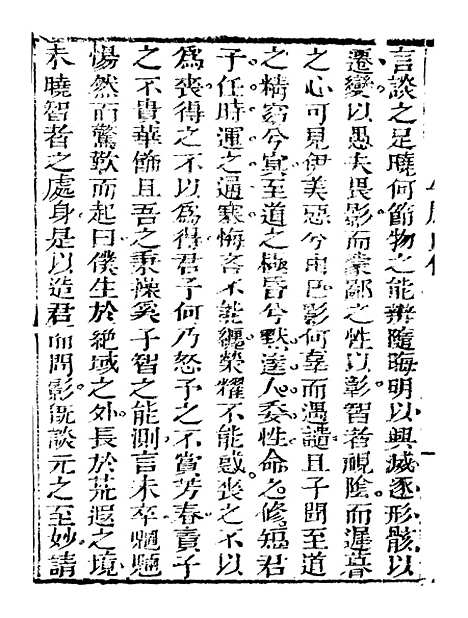 言談之足曉何節物之能辨隨晦明以興滅逐形骸以
遷變以愚夫畏影而蒙鄙之性以彰智者視陰而遲暮
之心可見伊美惡兮由巳影何辜而遇譴且子聞至道
之精窈兮冥至道之極昏兮默達人委性命之修短君
子任時運之通塞悔吝不能纏榮耀不能惑喪之不以
爲喪得之不以爲得君子何乃怒予之不賞芳春責予
之不貴華飾且吾之秉操奚子智之能測言未卒魍魎
惕然而驚歎而起曰僕生於絶域之外長於荒遐之境
未曉智者之處身是以造君而問影旣談元之至妙請